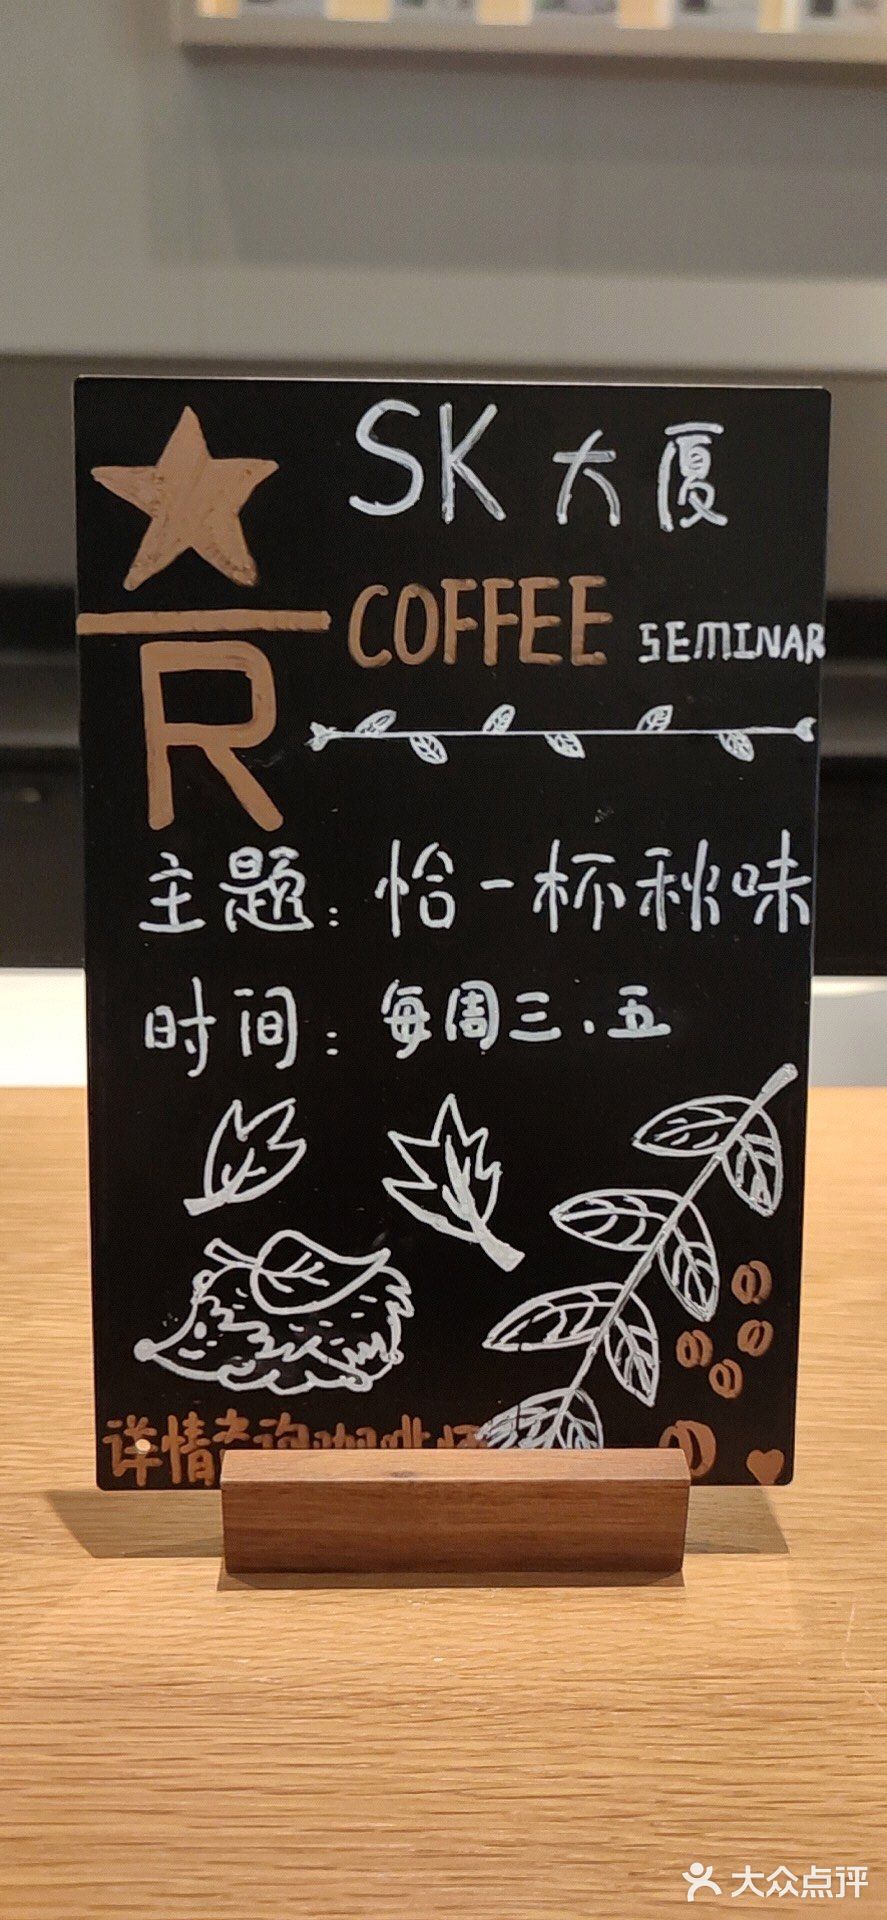 SK大厦
COFFEE SEMINAR
R
主题：恰一杯秋味
时间：每周三、五
详情咨询咖啡师
大众点评